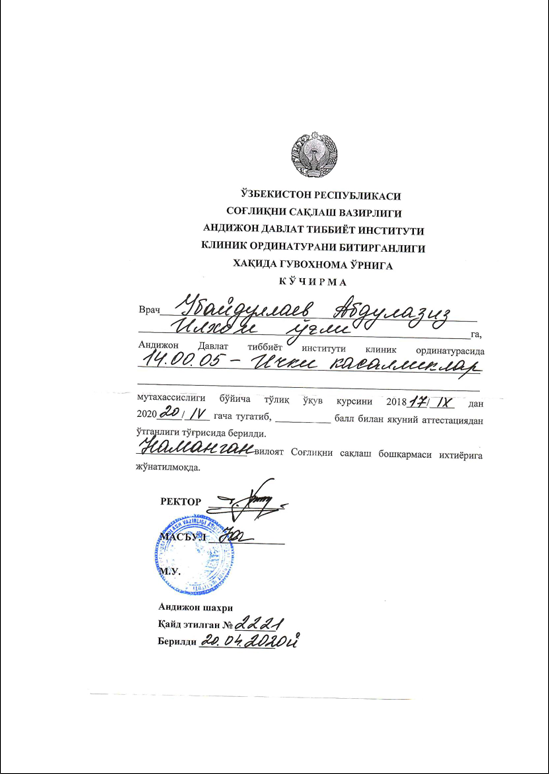 ЎЗБЕКИСТОН РЕСПУБЛИКАСИ
СОҒЛИҚНИ САҚЛАШ ВАЗИРЛИГИ
АНДИЖОН ДАВЛАТ ТИББИЁТ ИНСТИТУТИ
КЛИНИК ОРДИНАТУРАНИ БИТИРГАНЛИГИ
ХАҚИДА ГУВОХНОМА ЎРНИГА
К Ў Ч И Р М А
Врач Убайдуллаев Абдулазиз
Илхом ўғли га,
Андижон Давлат тиббиёт институти клиник ординатурасида
14.00.05 – Ички касалликлар
мутахассислиги бўйича тўлиқ ўқув курсини 2018 17/ IX дан
2020 20 / IV гача тугатиб, ____________ балл билан якуний аттестациядан
ўтганлиги тўғрисида берилди.
Наманган вилоят Соғлиқни сақлаш бошқармаси ихтиёрига
жўнатилмоқда.
РЕКТОР
МАСЪУЛ
М.У.
Андижон шахри
Қайд этилган № 2221
Берилди 20.04.2020й